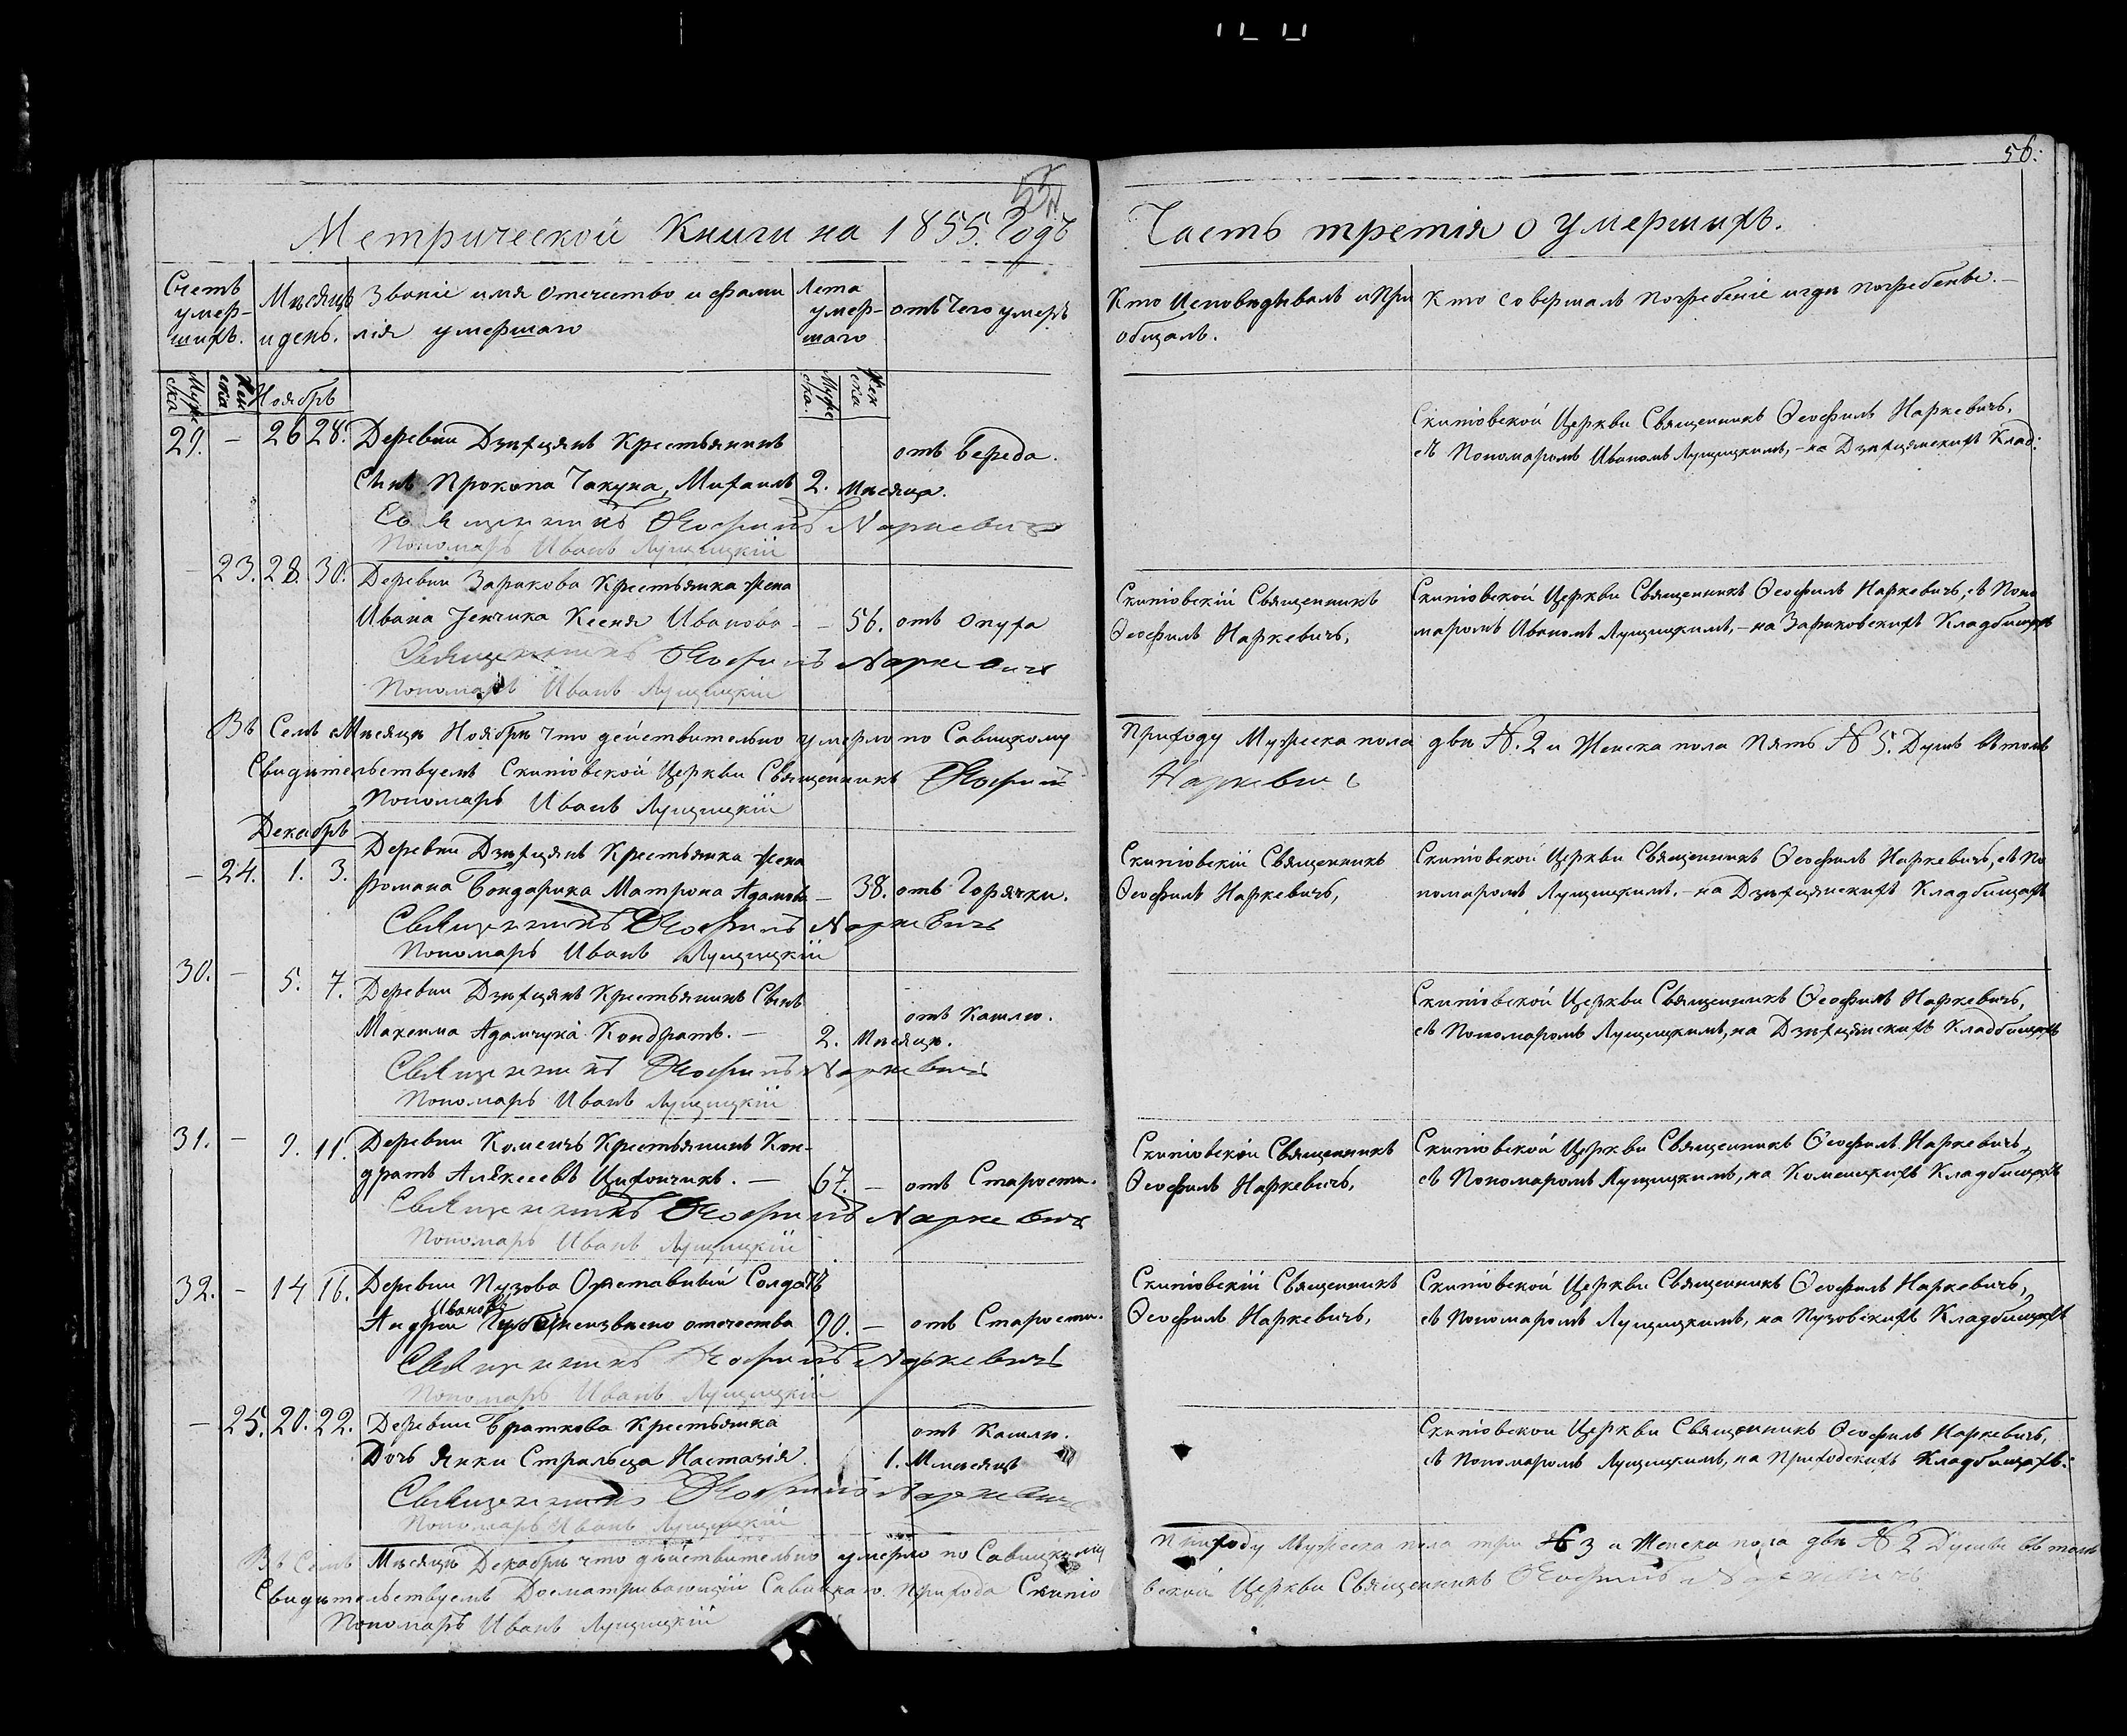 56.
55
Метрической Книги на 1855. Годъ
Часть третія о Умершихъ.
Счетъ умер-шихъ.
Мѣсяцъ и день.
Званіе имя Отечество и фами
лія умершаго
Лета умер-шаго
отъ Чего умеръ
Кто Исповѣдывалъ и При
общалъ.
Кто совершалъ погребеніе и гдѣ погребены.
Мужеска
Женска
Ноябрь
Мужеска.
Женска
29. – 26 28. Деревни Дзѣхцянъ Крестьянинъ
отъ вереда.
Сынъ Прокопа Чакуна, Михаилъ 2. Мѣсяца.
Священникъ Ѳеофилъ Наркевичъ
Пономарь Иванъ Лущицкій
Скитовской Церкви Священникъ Ѳеофилъ Наркевичъ,
съ Пономаромъ Иваномъ Лущицкимъ, – на Дзѣхцянскихъ Клад:
– 23. 28. 30. Деревни Заракова Крестьянка Жена
Ивана Ксеня Иванова – – 56. отъ Опуха
Священникъ Ѳеофилъ Наркевичъ
Пономарь Иванъ Лущицкій
Скитовскій Священникъ
Ѳеофилъ Наркевичъ,
Скитовской Церкви Священникъ Ѳеофилъ Наркевичъ, съ Поно
маромъ Иваномъ Лущицкимъ, – на Зараковскихъ Кладбищахъ
Въ Семъ Мѣсяцѣ Ноябрѣ что действительно умерло по Савицкому
Приходу Мужеска пола двѣ № 2 и Женска пола Пять № 5. Душъ въ томъ
Свидѣтельствуемъ Скитовской Церкви Священникъ Ѳеофилъ
Наркевичъ
Пономарь Иванъ Лущицкій
Декабрь
– 24. 1. 3. Деревни Дзѣхцянъ Крестьянка Жена
Романа Бондарика Матрона Адамова – 38. отъ Горячки.
Священникъ Ѳеофилъ Наркевичъ
Пономарь Иванъ Лущицкій
Скитовскій Священникъ
Ѳеофилъ Наркевичъ,
Скитовской Церкви Священникъ Ѳеофилъ Наркевичъ, съ По
номаромъ Лущицкимъ. – на Дзѣхцянскихъ Кладбищахъ
30. – 5. 7. Деревни Дзѣхцянъ Крестьянинъ Сынъ
отъ Кашлю.
Максима Адамчука Кондратъ. – 2. Мѣсяцъ.
Священникъ Ѳеофилъ Наркевичъ
Пономарь Иванъ Лущицкій
Скитовской Церкви Священникъ Ѳеофилъ Наркевичъ,
съ Пономаромъ Лущицкимъ, на Дзѣхцянскихъ Кладбищахъ
31. – 9. 11. Деревни Коменчъ Крестьянинъ Кон-
дратъ Алексеевъ Цихончикъ. – 67. – отъ Старости.
Священникъ Ѳеофилъ Наркевичъ
Пономарь Иванъ Лущицкій
Скитовской Священникъ
Ѳеофилъ Наркевичъ,
Скитовской Церкви Священникъ Ѳеофилъ Наркевичъ,
съ Пономаромъ Лущицкимъ, на Коменцкихъ Кладбищахъ
32. – 14 16. Деревни Пузова Отставный Солдатъ
Ивановъ
Андрей неизвѣсно отечества 90. – отъ Старости.
Священникъ Ѳеофилъ Наркевичъ
Пономарь Иванъ Лущицкій
Скитовскій Священникъ
Ѳеофилъ Наркевичъ,
Скитовской Церкви Священникъ Ѳеофилъ Наркевичъ,
съ Пономаромъ Лущицкимъ, на Пузовскихъ Кладбищахъ
– 25. 20. 22. Деревни Браткова Крестьянка
отъ Кашлю.
Дочь Янки Стральца Настазія. 1. Мѣсяцъ
Священникъ Ѳеофилъ Наркевичъ
Пономарь Иванъ Лущицкій
Скитовской Церкви Священникъ Ѳеофилъ Наркевичъ,
съ Пономаромъ Лущицкимъ, на Приходскихъ Кладбищахъ:
Въ Семъ Мѣсяцѣ Декабрѣ что дѣйствительно умерло по Савицкому
Приходу Мужеска пола три № 3 и Женска пола двѣ № 2 Души въ томъ
Свидѣтельствуемъ Досматривающій Савицкаго Прихода Скито
вской Церкви Священникъ Ѳеофилъ Наркевичъ
Пономарь Иванъ Лущицкій